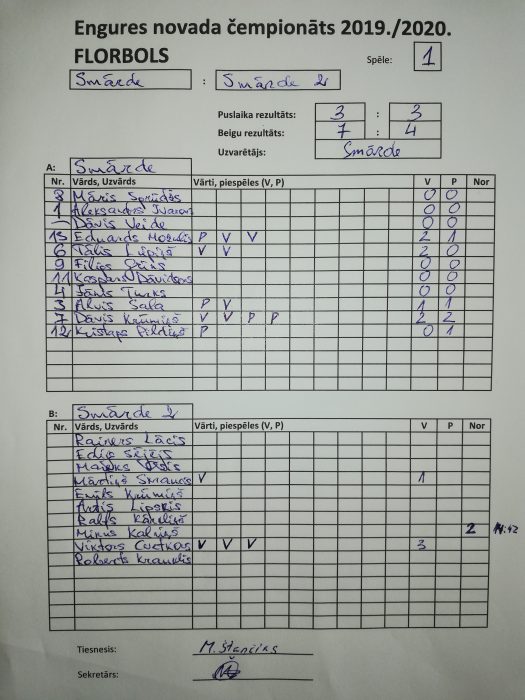 Engures novada čempionāts 2019./2020.
FLORBOLS
Spēle: 1
Smārde : Smārde 2
Puslaika rezultāts: 3 : 3
Beigu rezultāts: 7 : 4
Uzvarētājs: Smārde
A: Smārde
Nr. Vārds, Uzvārds Vārti, piespēles (V, P) V P Nor
8 Māris Sprūdžs 0 0
1 Aleksandrs 0 0
Dāvis Veide 0 0
13 Eduards P V V 2 1
6 Tālis Lūpiņš V V 2 0
9 0 0
11 Kaspars Dāvidsons 0 0
4 Jānis Turks 0 0
3 Alvis Sala P V 1 1
7 Dāvis Krūmiņš V V P P 2 2
12 Kristaps Pildiņš P 0 1
B: Smārde 2
Nr. Vārds, Uzvārds Vārti, piespēles (V, P) V P Nor
Rainers Lācis
Mārtiņš V 1
Emīls Krūmiņš
Lipskis
Ralfs Kārkliņš
Kalniņš 2 :42
Viktors V V V 3
Roberts Krauklis
Tiesnesis: M. Štančiks
Sekretārs: